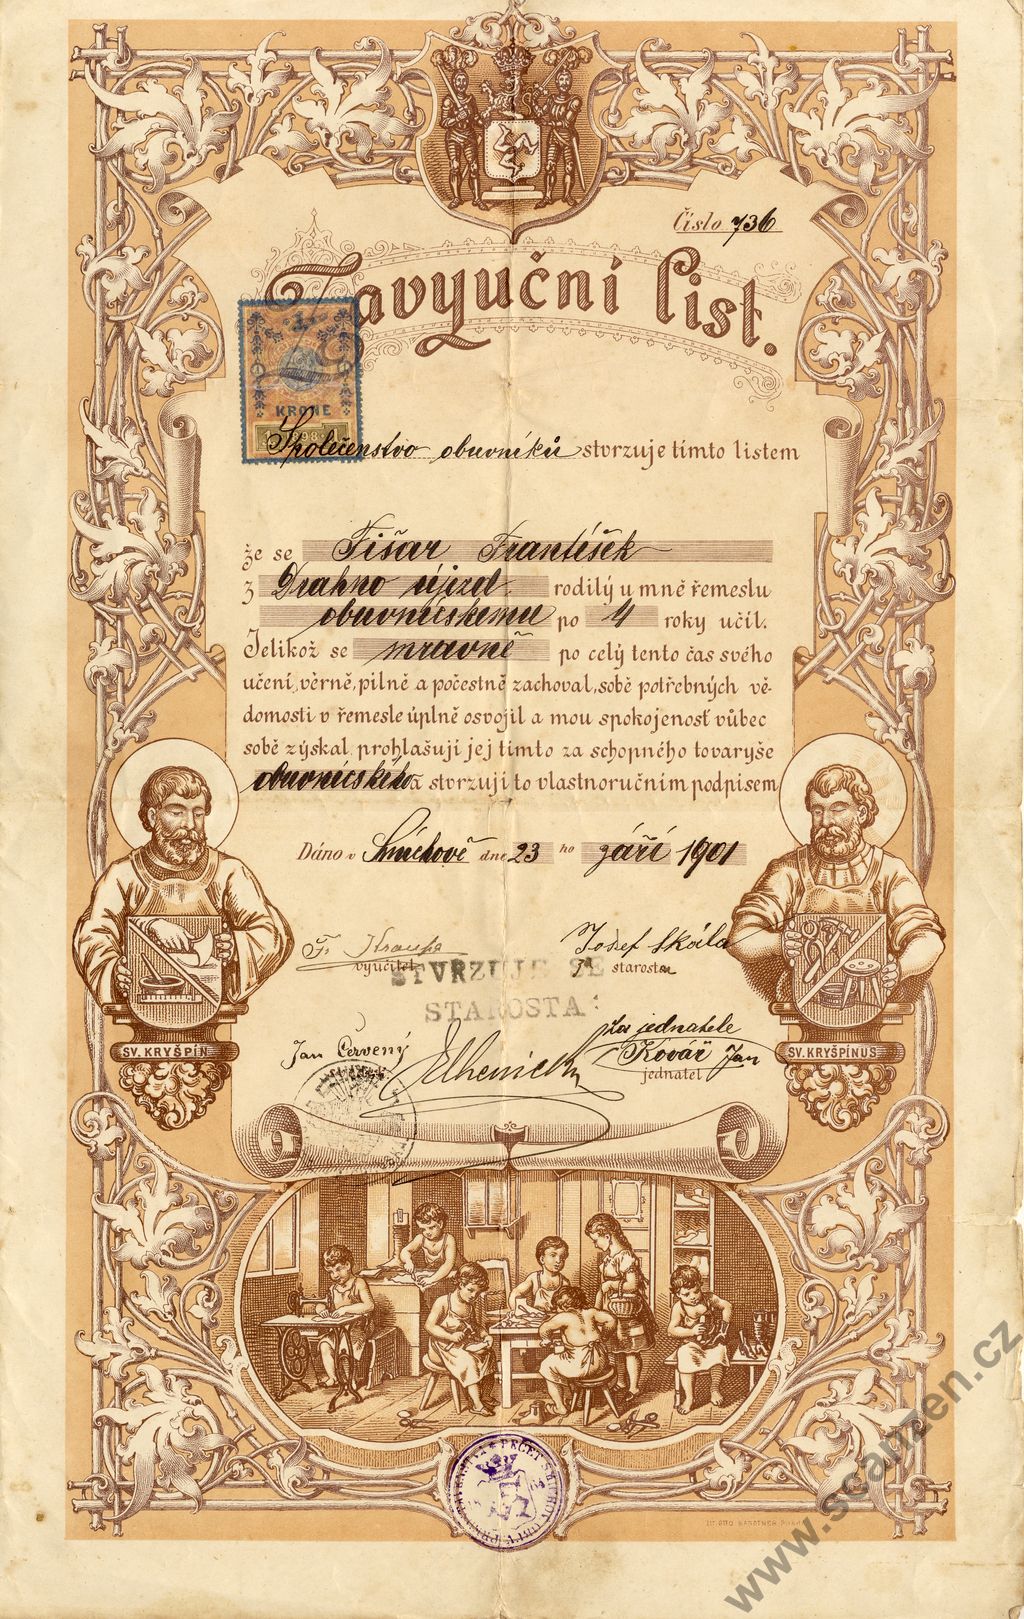 Číslo 736
Zavyuční list.
KRONE
1898
Společenstvo obuvníků stvrzuje tímto listem
že se Fišar František
z Drahno újezd rodilý u mně řemeslu
obuvnickému po 4 roky učil.
Jelikož se mravně po celý tento čas svého
učení, věrně, pilně a počestně zachoval, sobě potřebných vě-
domostí v řemesle úplně osvojil a mou spokojenosť vůbec
sobě získal, prohlašuji jej tímto za schopného tovaryše
obuvnického a stvrzuji to vlastnoručním podpisem
Dáno v Smíchově dne 23 ho září 1901
Fr. Kraupa
vyučitel
Josef Skála
starosta
STVRZUJE SE
STAROSTA:
Jan Červený
Za jednatele
Kovář Jan
jednatel
SV. KRYŠPÍN
SV. KRYŠPÍNUS
PEČEŤ
www.scanzen.cz